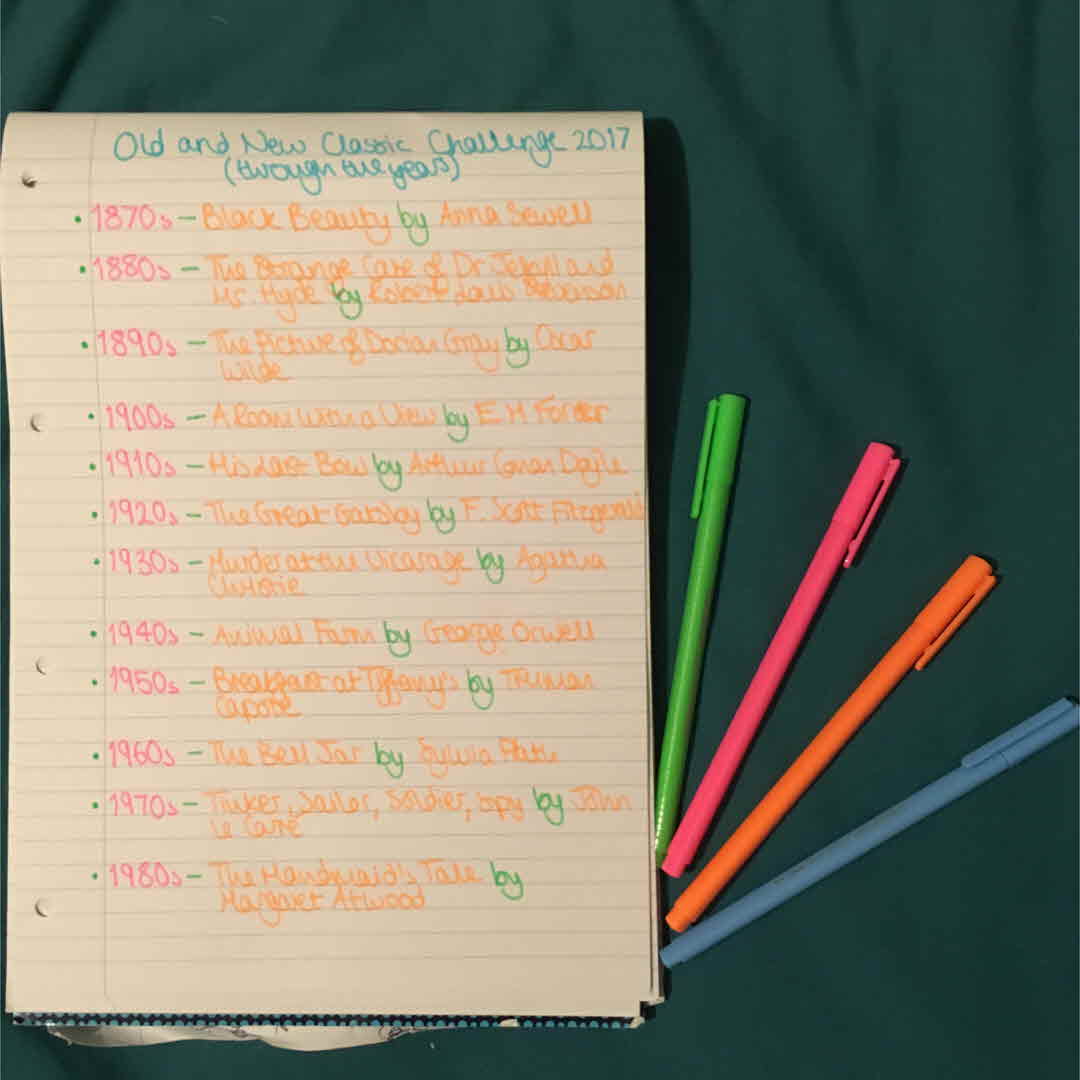 Old and New Classic Challenge 2017
(through the years)
• 1870s – Black Beauty by Anna Sewell
• 1880s – The Strange Case of Dr Jekyll and
Mr. Hyde by Robert Louis Stevenson
• 1890s – The Picture of Dorian Gray by Oscar
Wilde
• 1900s – A Room With a View by E M Forster
• 1910s – His Last Bow by Arthur Conan Doyle
• 1920s – The Great Gatsby by F. Scott Fitzgerald
• 1930s – Murder at the Vicarage by Agatha
Christie
• 1940s – Animal Farm by George Orwell
• 1950s – Breakfast at Tiffany's by Truman
Capote
• 1960s – The Bell Jar by Sylvia Plath
• 1970s – Tinker, Sailor, Soldier, Spy by John
le Carré
• 1980s – The Handmaid's Tale by
Margaret Atwood